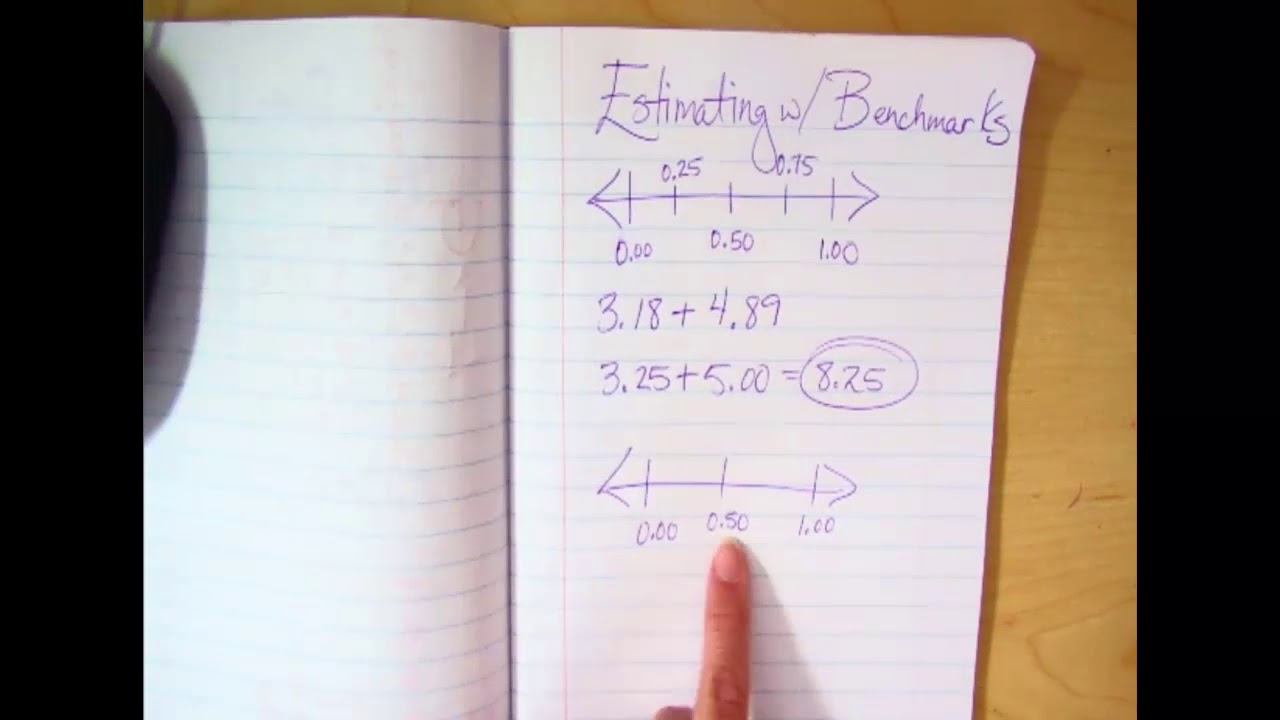 Estimating w/ Benchmarks
0.25 0.75
0.00 0.50 1.00
3.18 + 4.89
3.25 + 5.00 = 8.25
0.00 0.50 1.00